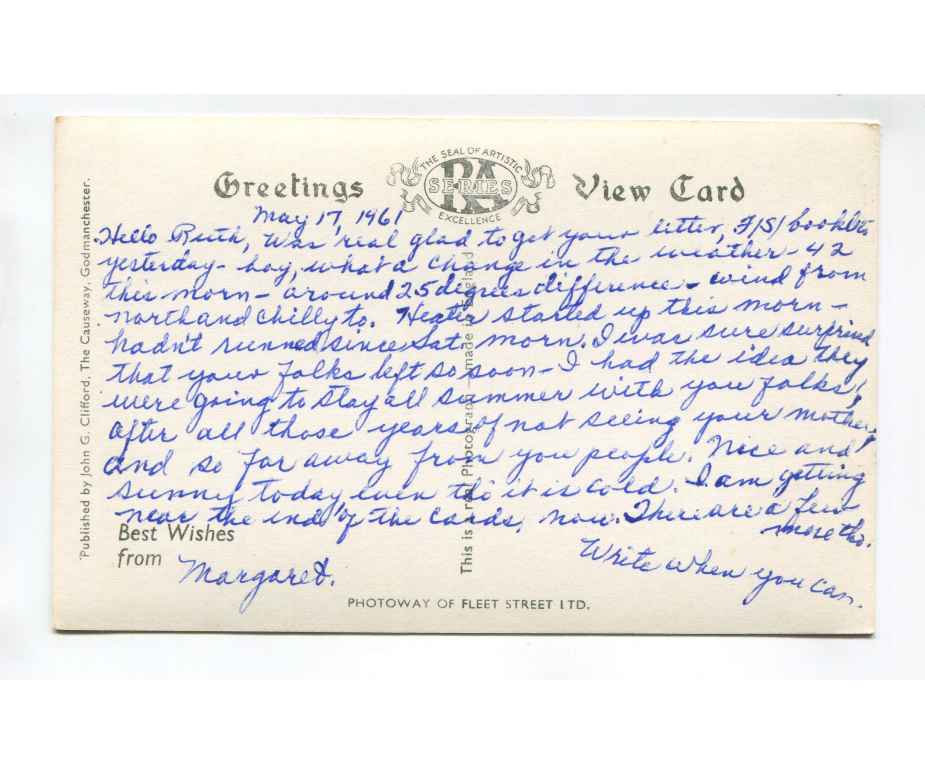 Greetings
THE SEAL OF ARTISTIC
RA
SERIES
EXCELLENCE
View Card
May 17, 1961
Hello Ruth, Was real glad to get your letter, F/S/ booklets
yesterday - boy, what a change in the weather - 42
this morn - around 25 degrees difference - wind from
north and chilly to. Heater started up this morn -
hadn't runned since Sat. morn. I was sure surprised
that your folks left so soon - I had the idea they
were going to stay all summer with you folks,
after all those years of not seeing your mother,
and so far away from you people. Nice and
sunny today even tho it is cold. I am getting
near the end of the cards, now. There are a few
more tho.
Write when you can.
Best Wishes
from
Margaret.
PHOTOWAY OF FLEET STREET LTD.
Published by John G. Clifford, The Causeway, Godmanchester.
This is a real Photograph - made in England